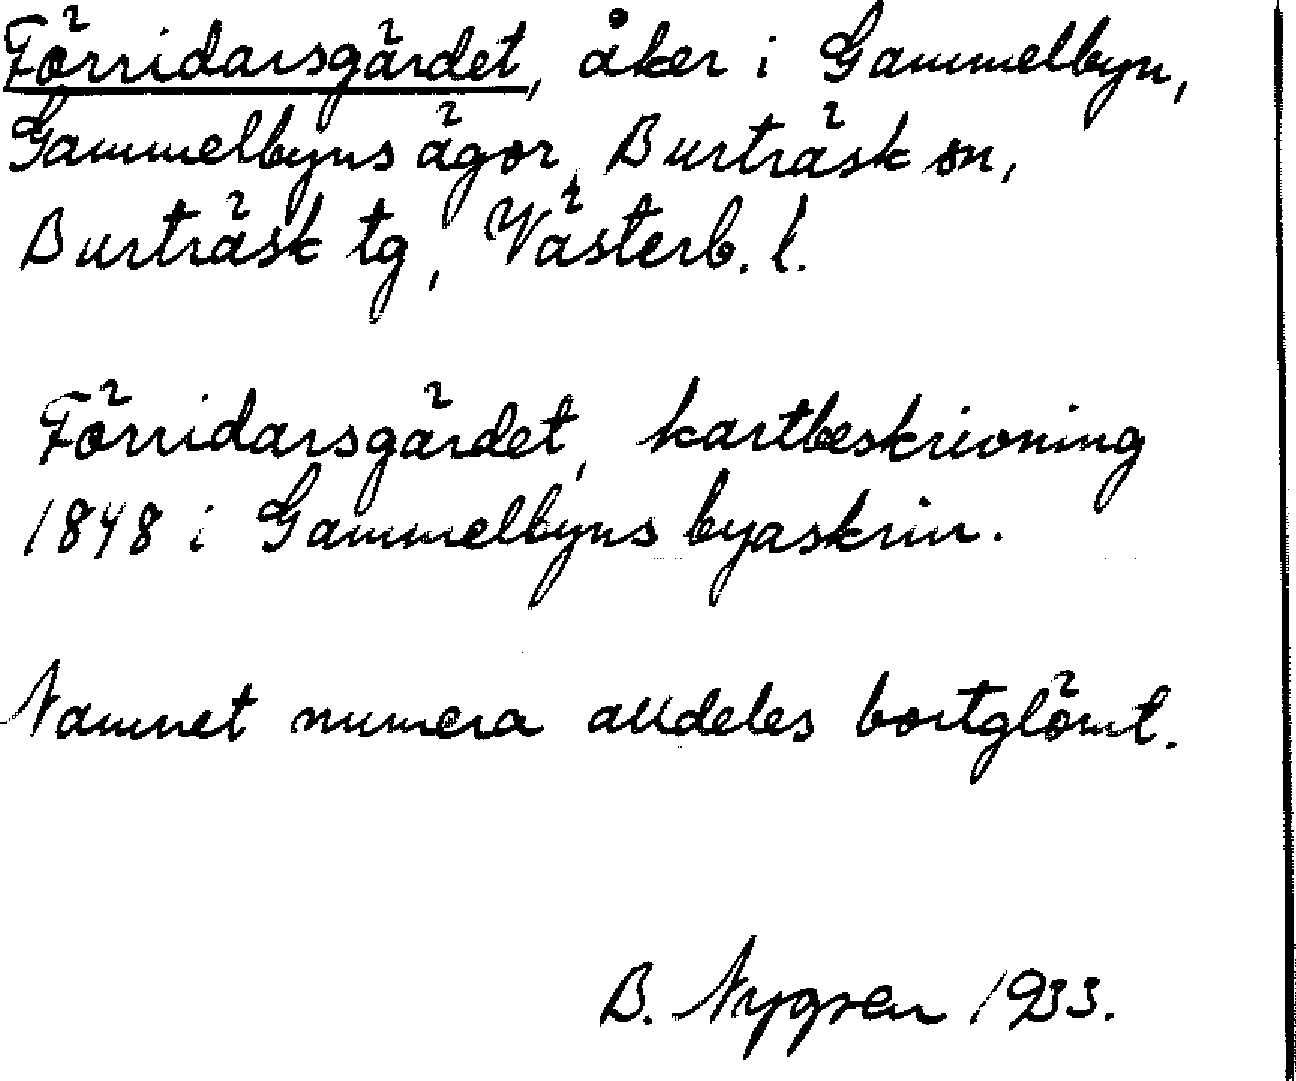 Förridarsgärdet, åker i Gammelbyn,
Gammelbyns ägor, Burträsk sn,
Burträsk tg, Västerb. l.
Förridarsgärdet, kartbeskrivning
1848 i Gammelbyns byaskrin.
Namnet numera alldeles bortglömt.
B. Nygren 1933.